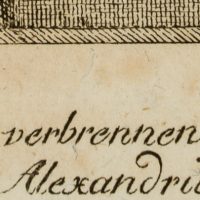 verbrennen
Alexandri